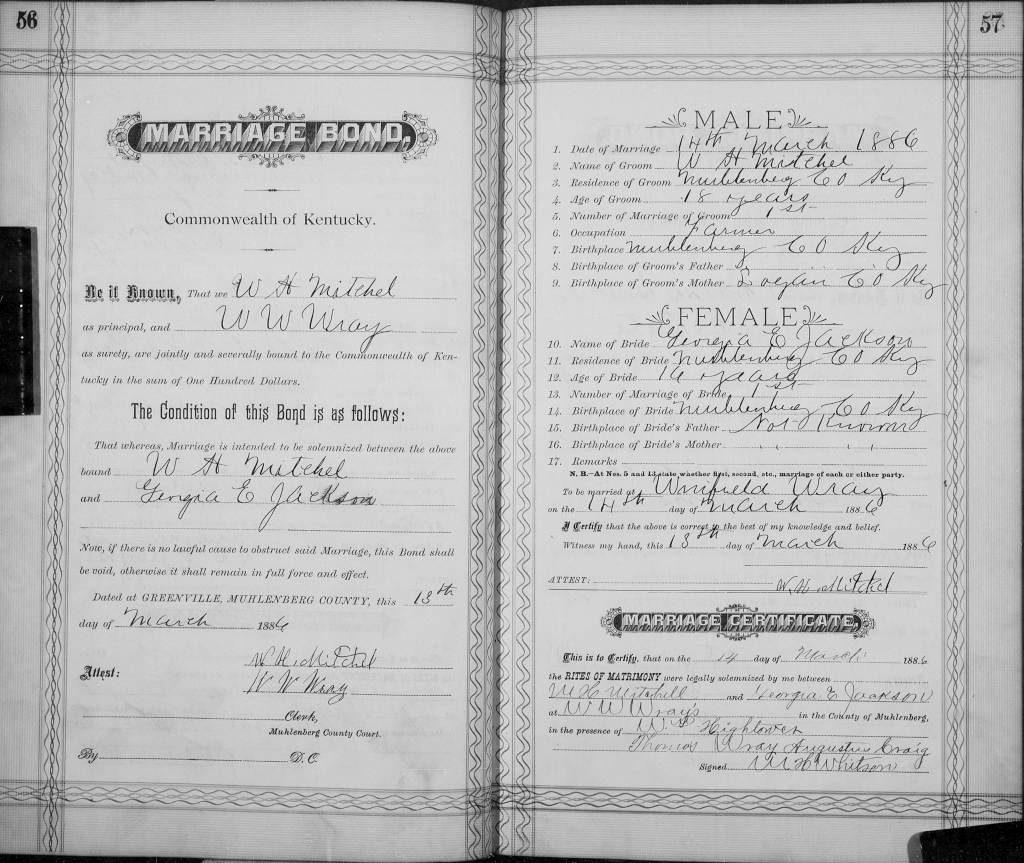 56
MARRIAGE BOND,
Commonwealth of Kentucky.
Be it Known, That we W H Mitchel
as principal, and W W Wray
as surety, are jointly and severally bound to the Commonwealth of Ken-
tucky in the sum of One Hundred Dollars.
The Condition of this Bond is as follows:
That whereas, Marriage is intended to be solemnized between the above
bound W H Mitchel
and Georgia E Jackson
Now, if there is no lawful cause to obstruct said Marriage, this Bond shall
be void, otherwise it shall remain in full force and effect.
Dated at GREENVILLE, MUHLENBERG COUNTY, this 13th
day of March 1886
W. H. Mitchel
Attest: W W Wray
Clerk,
Muhlenberg County Court.
By D. C.
57
MALE
1. Date of Marriage 14th March 1886
2. Name of Groom W H Mitchel
3. Residence of Groom Muhlenberg CO Ky
4. Age of Groom 18 years
5. Number of Marriage of Groom 1st
6. Occupation Farmer
7. Birthplace Muhlenberg CO Ky
8. Birthplace of Groom's Father " " "
9. Birthplace of Groom's Mother Logan CO Ky
FEMALE
10. Name of Bride Georgia E Jackson
11. Residence of Bride Muhlenberg CO Ky
12. Age of Bride 16 years
13. Number of Marriage of Bride 1st
14. Birthplace of Bride Muhlenberg CO Ky
15. Birthplace of Bride's Father Not Known
16. Birthplace of Bride's Mother " "
17. Remarks
N. B.—At Nos. 5 and 13 state whether first, second, etc., marriage of each or either party.
To be married at Winifield Wray
on the 14th day of March 1886
I Certify that the above is correct to the best of my knowledge and belief.
Witness my hand, this 13th day of March 1886
ATTEST: W. H. Mitchel
MARRIAGE CERTIFICATE,
This is to Certify, that on the 14 day of March 1886
the RITES OF MATRIMONY were legally solemnized by me between
W H Mitchell and Georgia E Jackson
at W W Wray's in the County of Muhlenberg,
in the presence of Wm Hightower
Thomas Wray Augustus Craig
Signed W H Whitson